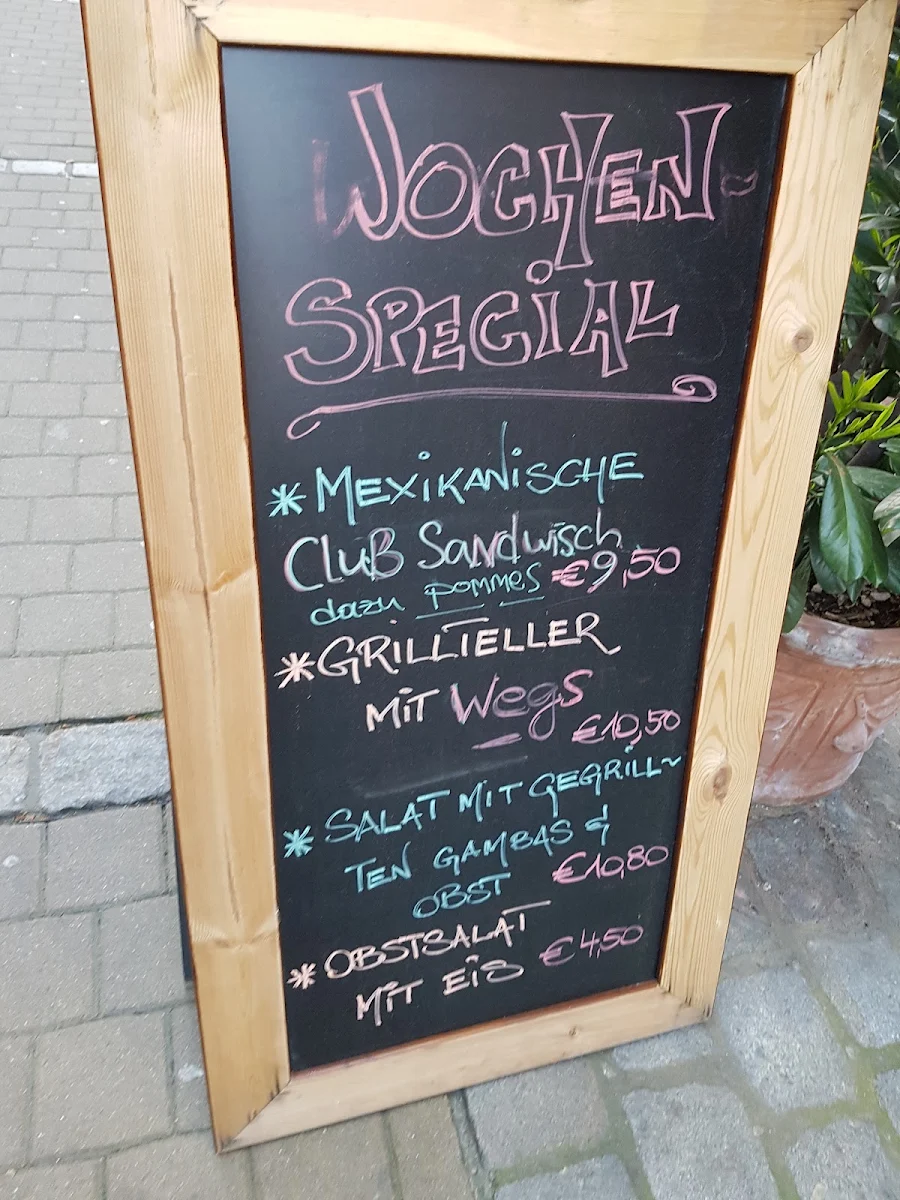 WOCHEN-
SPECiAL
* MEXiKANiSCHE
CluB Sandwisch
dazu pommes €9,50
* GRILLTELLER
MiT Wegs
€10,50
* SALAT MiT GEGRiLL~
TEN GAMBAS &
OBST €10,80
* OBSTSALAT
MiT EiS €4,50